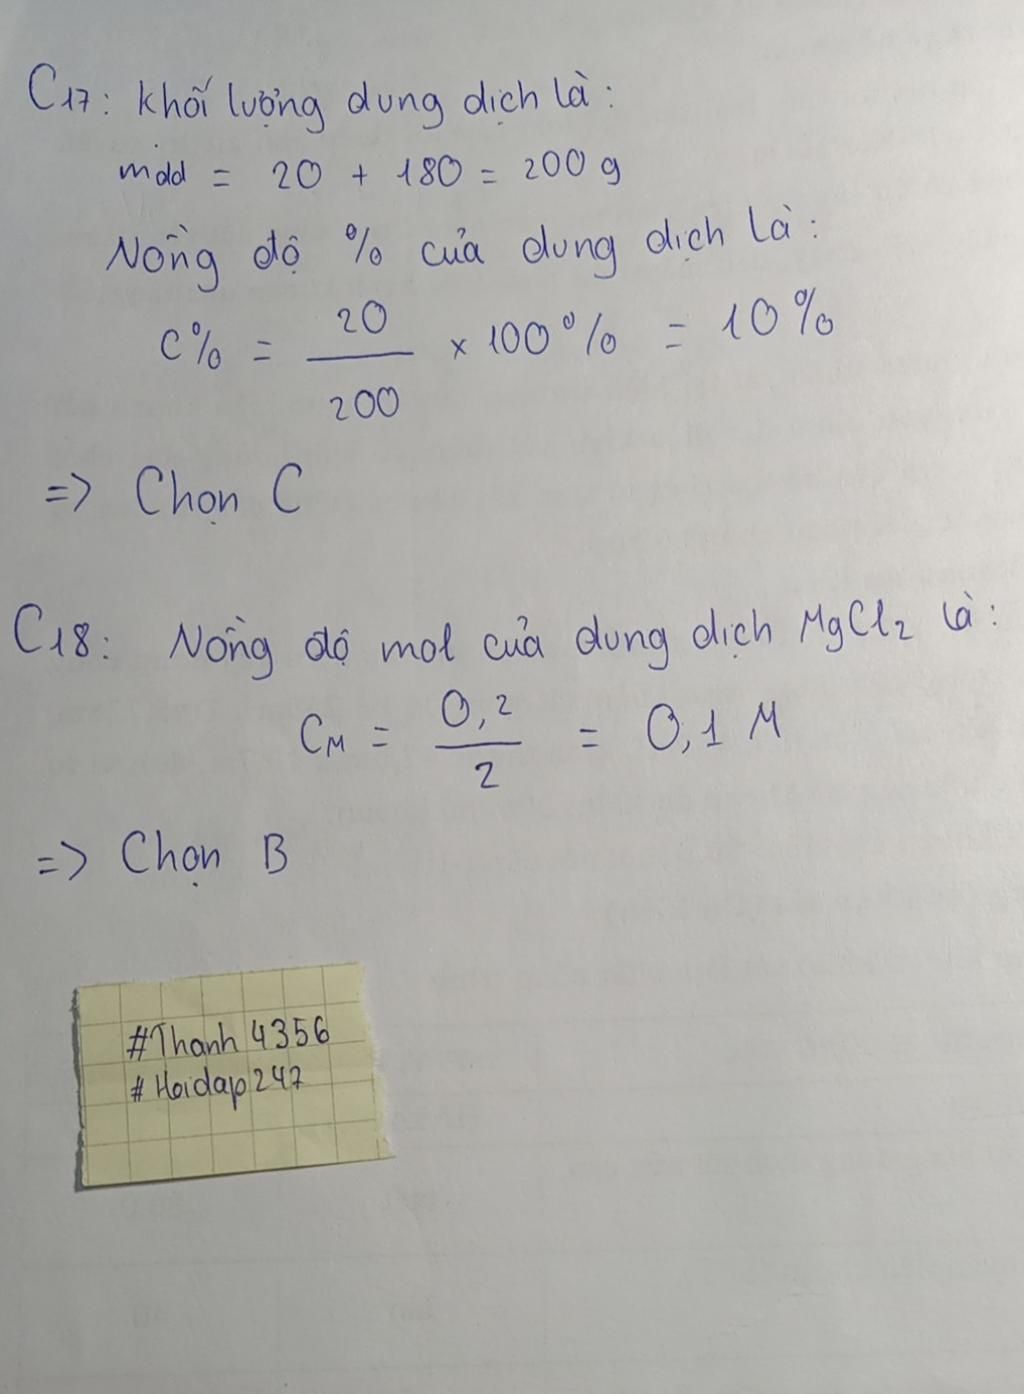 C17: Khối lượng dung dịch là:
mdd = 20 + 180 = 200 g
Nồng độ % của dung dịch là:
C% = 20/200 × 100% = 10%
=> Chọn C
C18: Nồng độ mol của dung dịch MgCl2 là:
CM = 0,2/2 = 0,1 M
=> Chọn B
#Thanh4356
#Hoidap247